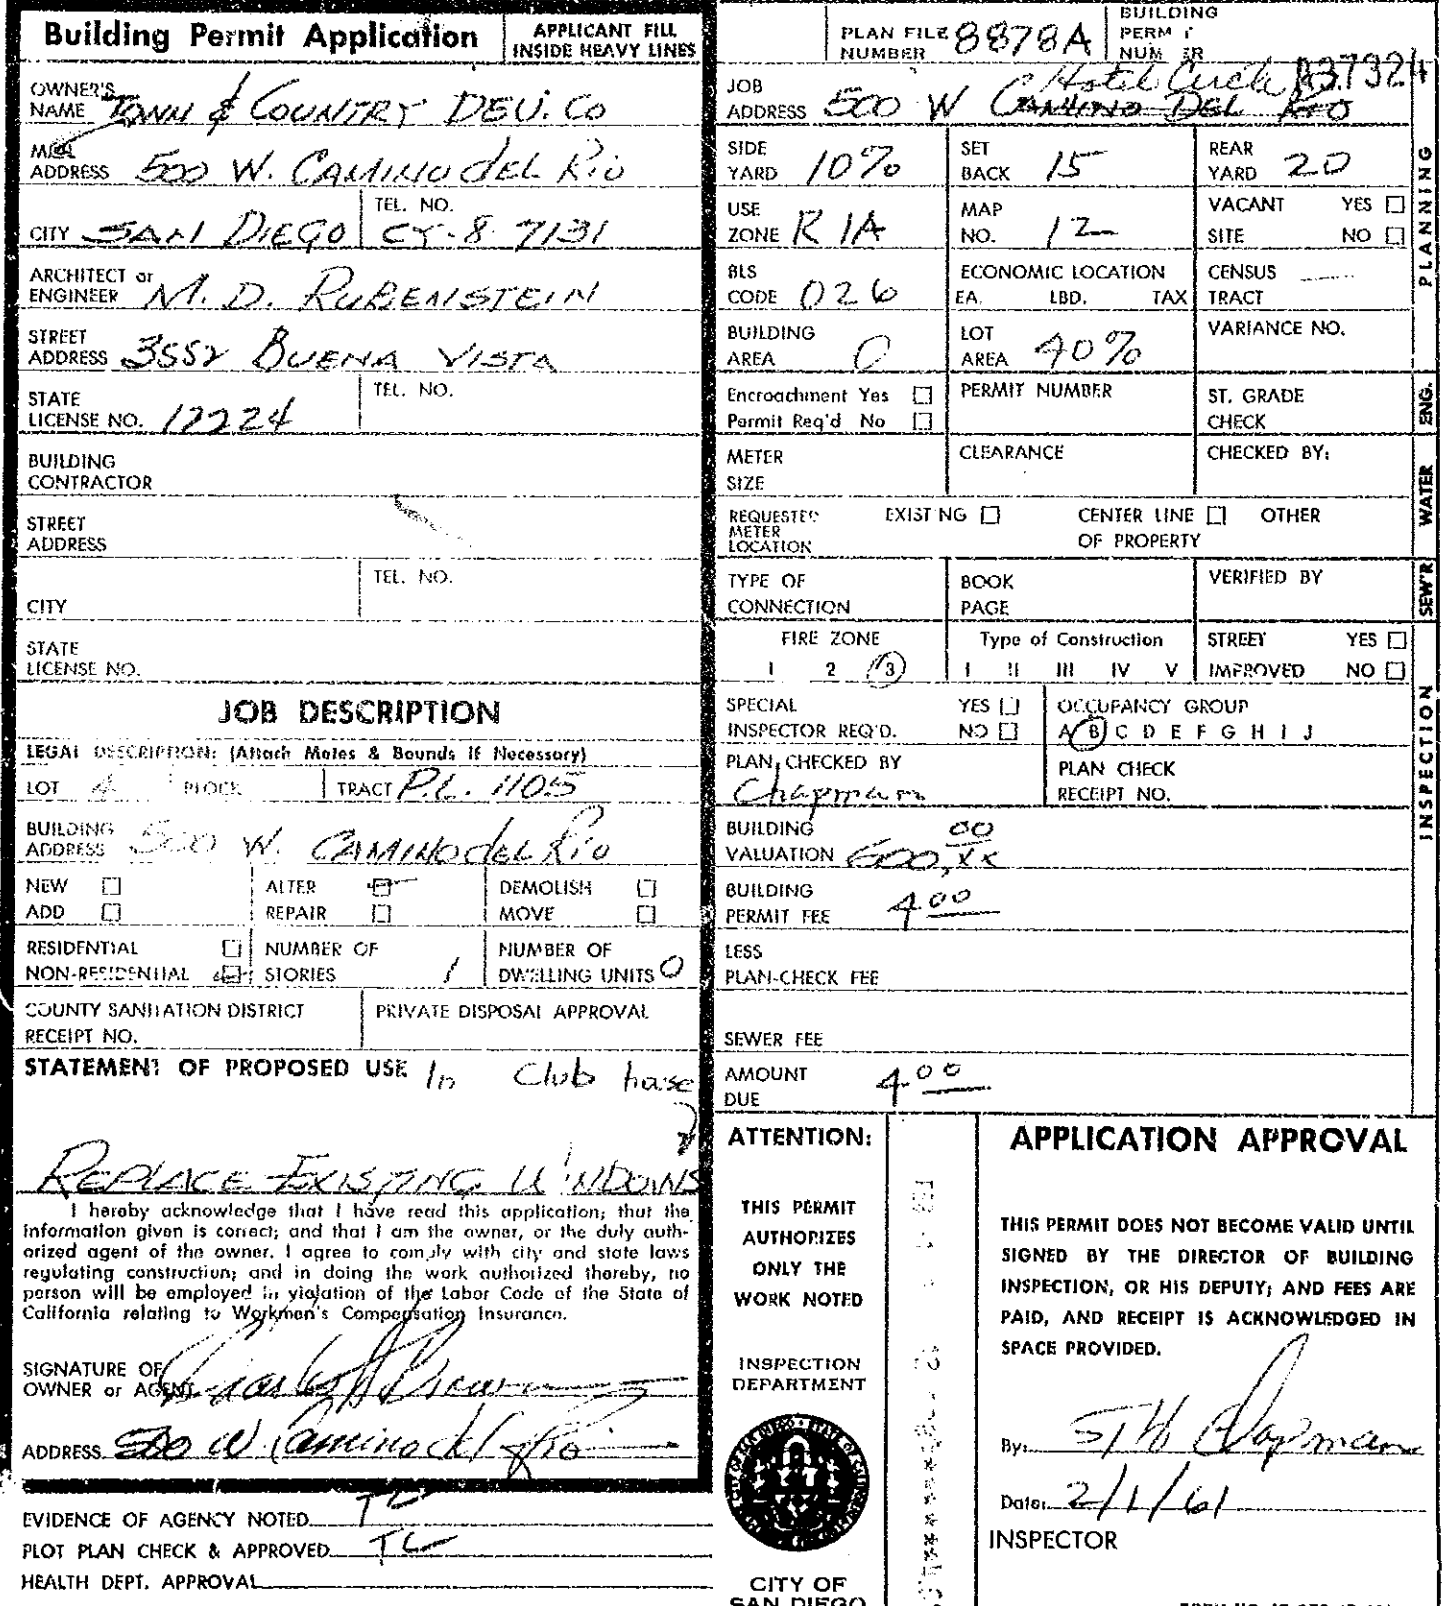 Building Permit Application
APPLICANT FILL
INSIDE HEAVY LINES
OWNER'S
NAME TOWN & COUNTRY DEV. CO
MAIL
ADDRESS 500 W. CAMINO del Rio
CITY SAN DIEGO
TEL. NO.
CY-8-7131
ARCHITECT or
ENGINEER M. D. RUBENSTEIN
STREET
ADDRESS 3552 BUENA VISTA
STATE
LICENSE NO. 12224
TEL. NO.
BUILDING
CONTRACTOR
STREET
ADDRESS
CITY
TEL. NO.
STATE
LICENSE NO.
JOB DESCRIPTION
LEGAL DESCRIPTION: (Attach Metes & Bounds If Necessary)
LOT 4 BLOCK TRACT P.L. 1105
BUILDING
ADDRESS 500 W. CAMINO del Rio
NEW ☐ ALTER ☐ DEMOLISH ☐
ADD ☐ REPAIR ☐ MOVE ☐
RESIDENTIAL ☐ NUMBER OF NUMBER OF
NON-RESIDENTIAL ☐ STORIES 1 DWELLING UNITS 0
COUNTY SANITATION DISTRICT PRIVATE DISPOSAL APPROVAL
RECEIPT NO.
STATEMENT OF PROPOSED USE In Club house
REPLACE EXISTING WINDOWS
I hereby acknowledge that I have read this application; that the
information given is correct; and that I am the owner, or the duly auth-
orized agent of the owner. I agree to comply with city and state laws
regulating construction; and in doing the work authorized thereby, no
person will be employed in violation of the Labor Code of the State of
California relating to Workmen's Compensation Insurance.
SIGNATURE OF
OWNER or AGENT Charles H Brown
ADDRESS 500 W Camino del Rio
EVIDENCE OF AGENCY NOTED TC
PLOT PLAN CHECK & APPROVED TC
HEALTH DEPT. APPROVAL
PLAN FILE
NUMBER 8878A
BUILDING
PERMIT
NUMBER A37324
JOB
ADDRESS 500 W CAMINO DEL RIO
Hotel Circle
SIDE
YARD 10%
SET
BACK 15
REAR
YARD 20
USE
ZONE R1A
MAP
NO. 12
VACANT YES ☐
SITE NO ☐
BLS
CODE 026
ECONOMIC LOCATION
EA. LBD. TAX
CENSUS
TRACT
BUILDING
AREA 0
LOT
AREA 40%
VARIANCE NO.
PLANNING
Encroachment Yes ☐
Permit Req'd No ☐
PERMIT NUMBER
ST. GRADE
CHECK
ENG.
METER
SIZE
CLEARANCE
CHECKED BY:
REQUESTED
METER
LOCATION
EXISTING ☐ CENTER LINE ☐ OTHER
OF PROPERTY
WATER
TYPE OF
CONNECTION
BOOK
PAGE
VERIFIED BY
SEW'R
FIRE ZONE
1 2 3
Type of Construction
I II III IV V
STREET YES ☐
IMPROVED NO ☐
SPECIAL YES ☐
INSPECTOR REQ'D. NO ☐
OCCUPANCY GROUP
A B C D E F G H I J
PLAN CHECKED BY
Chapman
PLAN CHECK
RECEIPT NO.
INSPECTION
BUILDING
VALUATION 600,00 xx
BUILDING
PERMIT FEE 4.00
LESS
PLAN-CHECK FEE
SEWER FEE
AMOUNT
DUE 4.00
ATTENTION:
THIS PERMIT
AUTHORIZES
ONLY THE
WORK NOTED
INSPECTION
DEPARTMENT
CITY OF
SAN DIEGO
APPLICATION APPROVAL
THIS PERMIT DOES NOT BECOME VALID UNTIL
SIGNED BY THE DIRECTOR OF BUILDING
INSPECTION, OR HIS DEPUTY; AND FEES ARE
PAID, AND RECEIPT IS ACKNOWLEDGED IN
SPACE PROVIDED.
By: Chapman
Date: 2/1/61
INSPECTOR